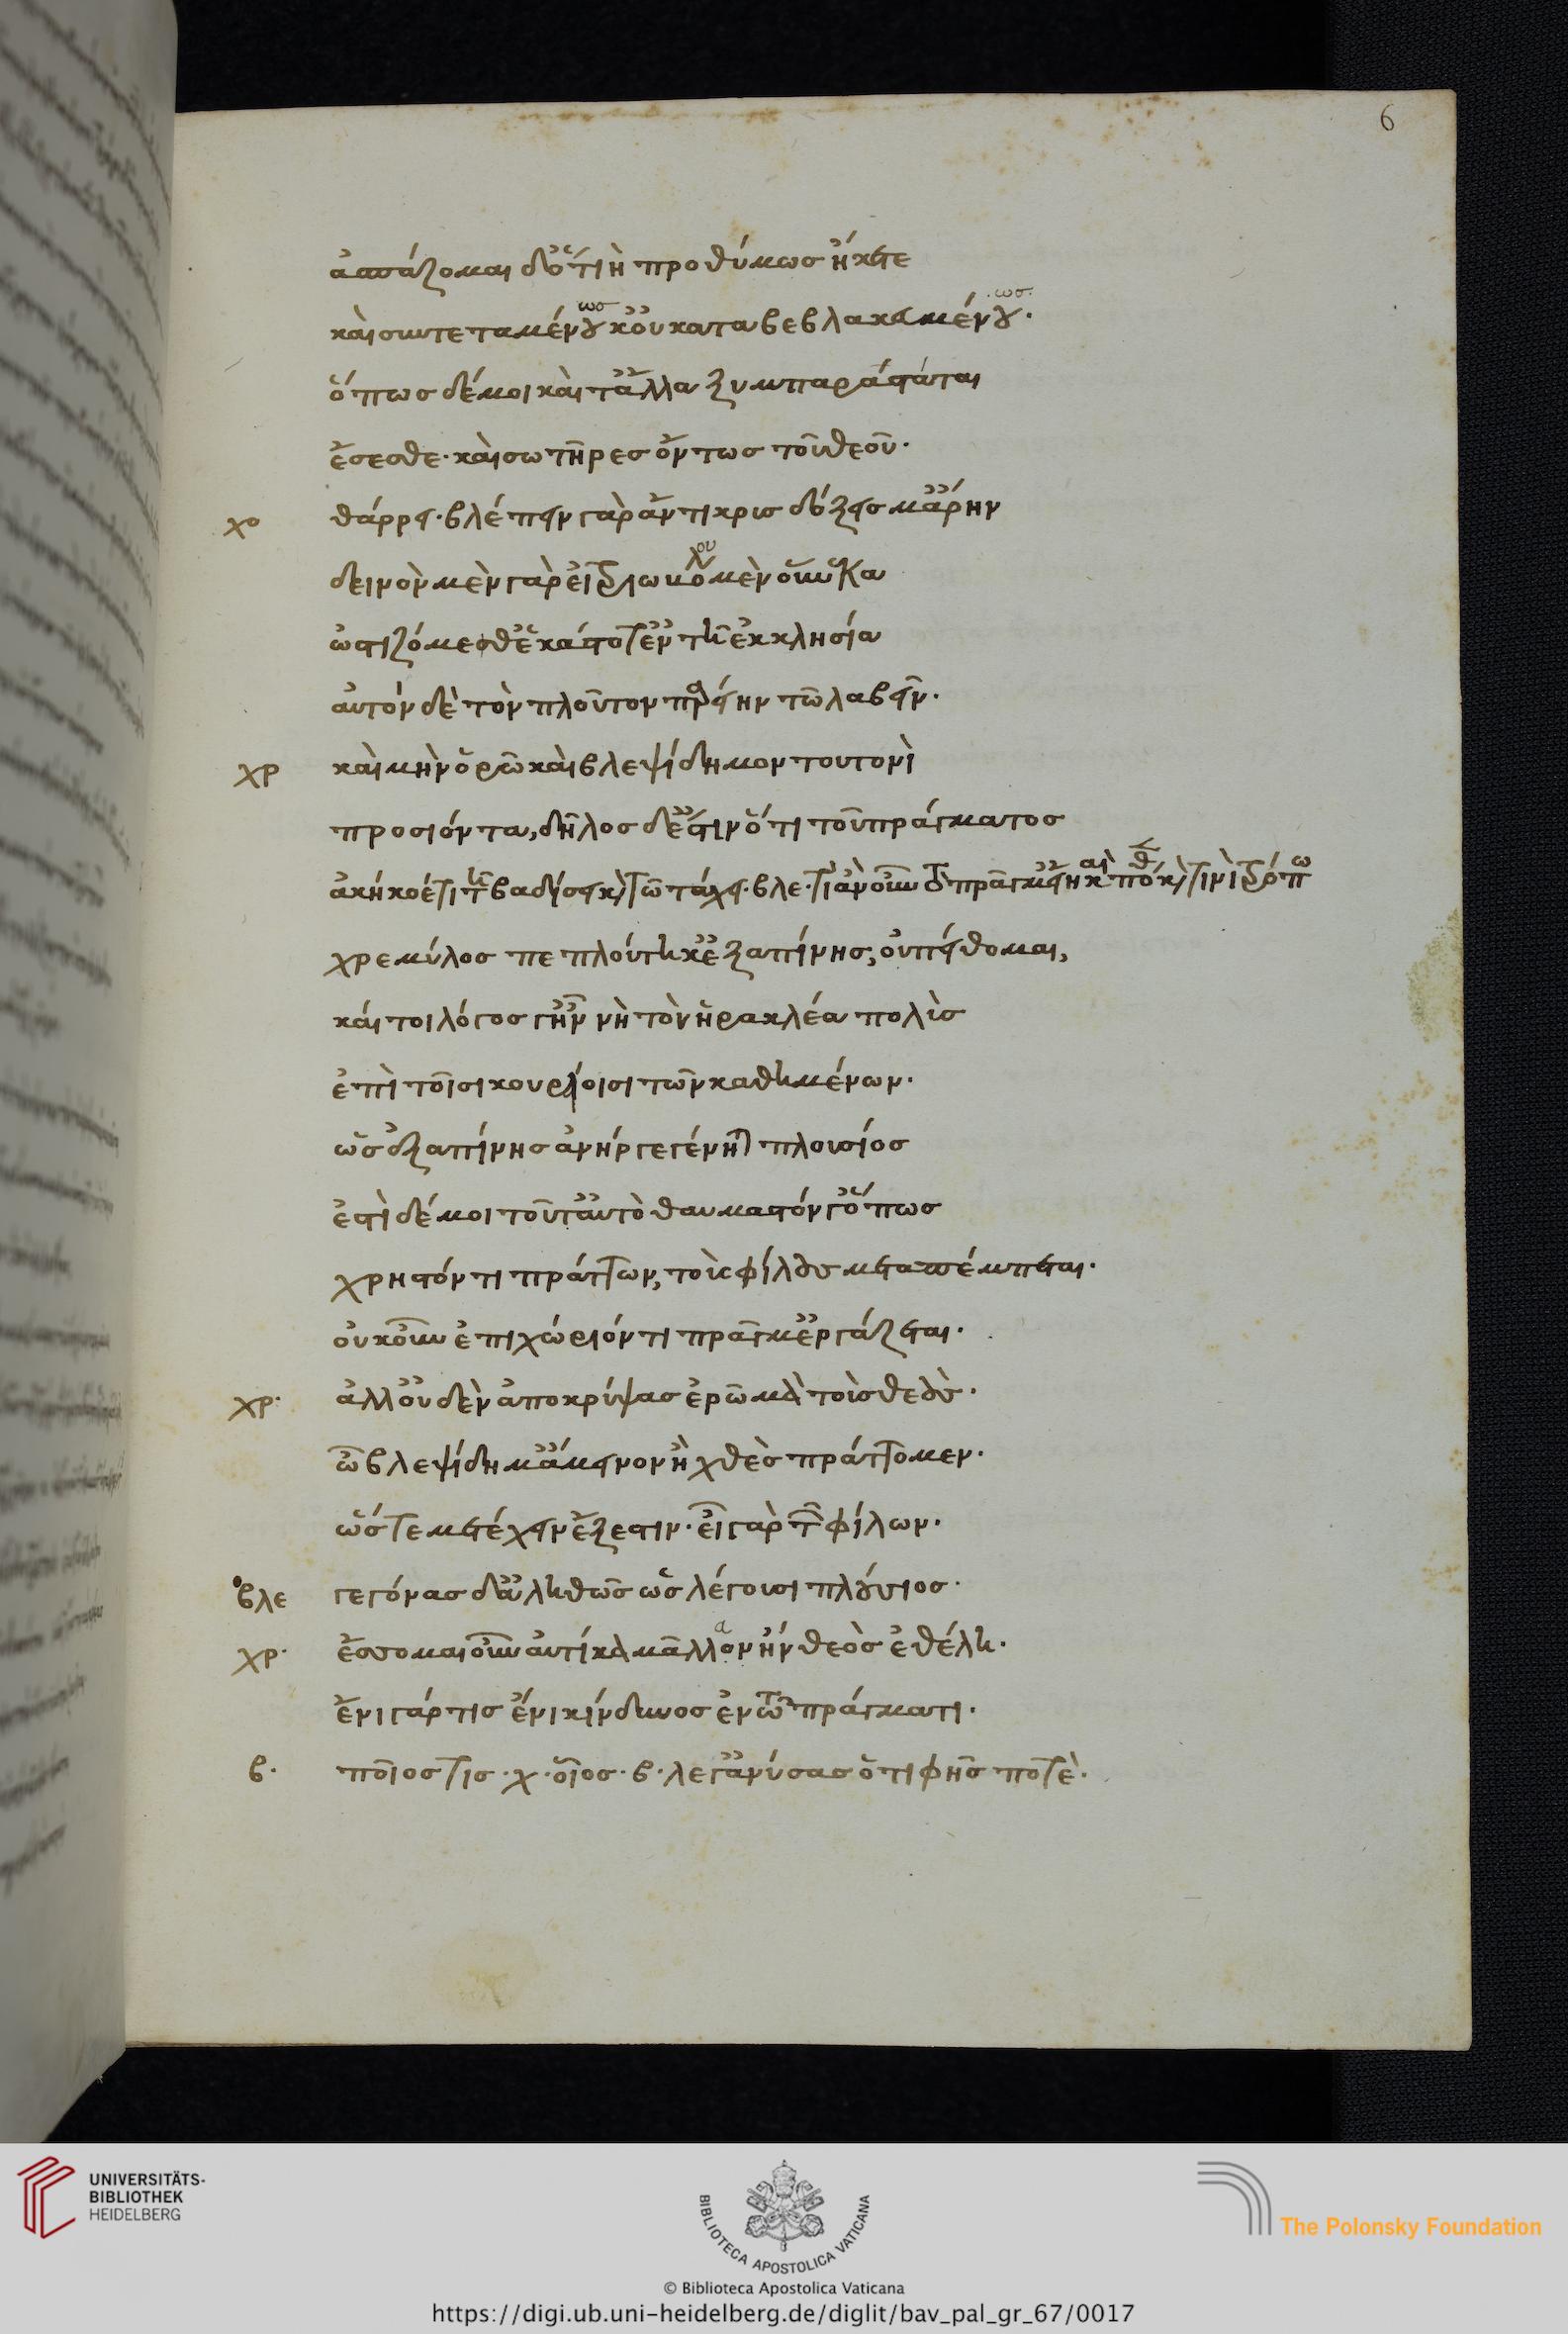 6
ἀσπάζομαι δ' ὁτιὴ προθύμως ἥκετε
καὶ συντεταμένως κοὐ καταβεβλακευμένως.
ὅπως δέ μοι καὶ τἄλλα ξυμπαραστάται
ἔσεσθε· καὶ σωτῆρες ὄντως τοῦ θεοῦ.
χο θάρρει· βλέπειν γὰρ ἄντικρις δόξεις μ' ἄρην
δεινὸν μὲν γὰρ εἰ τριωβόλου μὲν οὕνεκα
ὠστιζόμεσθ' ἑκάστοτ' ἐν τῇ ἐκκλησία
αὐτὸν δὲ τὸν πλοῦτον παρείην τῶ λαβεῖν.
χρ καὶ μὴν ὁρῶ καὶ βλεψίδημον τουτονὶ
προσιόντα, δῆλος δ' ἐστὶν ὅτι τοῦ πράγματος
ἀκήκοέ τι τῇ βαδίσει καὶ τῶ τάχει. βλε. τί ἂν οὖν τὸ πρᾶγμ' εἴη καὶ πόθεν καὶ τίνι τρόπω
χρεμύλος πεπλούτηκ' ἐξαπίνης, οὐ πείθομαι,
καίτοι λόγος γ' ἦν νὴ τὸν ἡρακλέα πολὺς
ἐπὶ τοῖσι κουρείοισι τῶν καθημένων.
ὡς ἐξαπίνης ἀνὴρ γεγένηται πλούσιος
ἐστὶ δέ μοι τοῦτ' αὐτὸ θαυμαστόν γ' ὅπως
χρηστόν τι πράττων, τοὺς φίλους μεταπέμπεται.
οὐκοῦν ἐπιχώριόν τι πρᾶγμ' ἐργάζεται.
χρ. ἀλλ' οὐδὲν ἀποκρύψας ἐρῶ μὰ τοὺς θεούς.
ὦ βλεψίδημ' ἄμεινον ἢ χθὲς πράττομεν.
ὥστε μετέχειν ἔξεστιν· εἶ γὰρ τῶν φίλων.
βλε γέγονας δ' ἀληθῶς ὡς λέγουσι πλούσιος.
χρ. ἔσομαι οὖν αὐτίκα μάλλον ἢν θεὸς ἐθέλη.
ἔνι γάρ τις ἔνι κίνδυνος ἐν τῶ πράγματι.
β. ποῖός τις. χ. οἷος. β. λέγ' ἀνύσας ὅτι φῆς ποτέ.
UNIVERSITÄTS-
BIBLIOTHEK
HEIDELBERG
BIBLIOTECA APOSTOLICA VATICANA
The Polonsky Foundation
© Biblioteca Apostolica Vaticana
https://digi.ub.uni-heidelberg.de/diglit/bav_pal_gr_67/0017